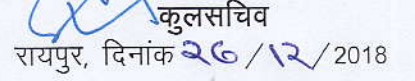 कुलसचिव
रायपुर, दिनांक 26/12/2018